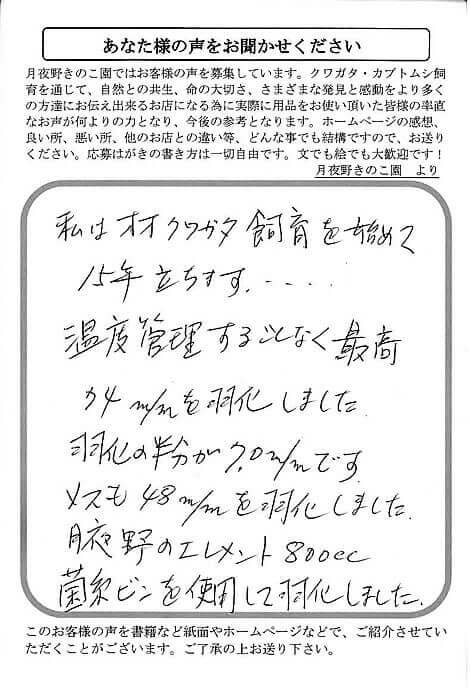 あなた様の声をお聞かせください
月夜野きのこ園ではお客様の声を募集しています。クワガタ・カブトムシ飼
育を通じて、自然との共生、命の大切さ、さまざまな発見と感動をより多く
の方達にお伝え出来るお店になる為に実際に用品をお使い頂いた皆様の率直
なお声が何よりの力となり、今後の参考となります。ホームページの感想、
良い所、悪い所、他のお店との違い等、どんな事でも結構ですので、お送り
ください。応募はがきの書き方は一切自由です。文でも絵でも大歓迎です！
月夜野きのこ園　より
私はオオクワガタ飼育を始めて
15年立ちます.....
温度管理することなく最高
74m/mを羽化しました
羽化の半分が7.0m/mです
メスも48m/mを羽化しました.
月夜野のエレメント800cc
菌糸ビンを使用して羽化しました.
このお客様の声を書籍など紙面やホームページなどで、ご紹介させてい
ただくことがございます。ご了承の上お送り下さい。